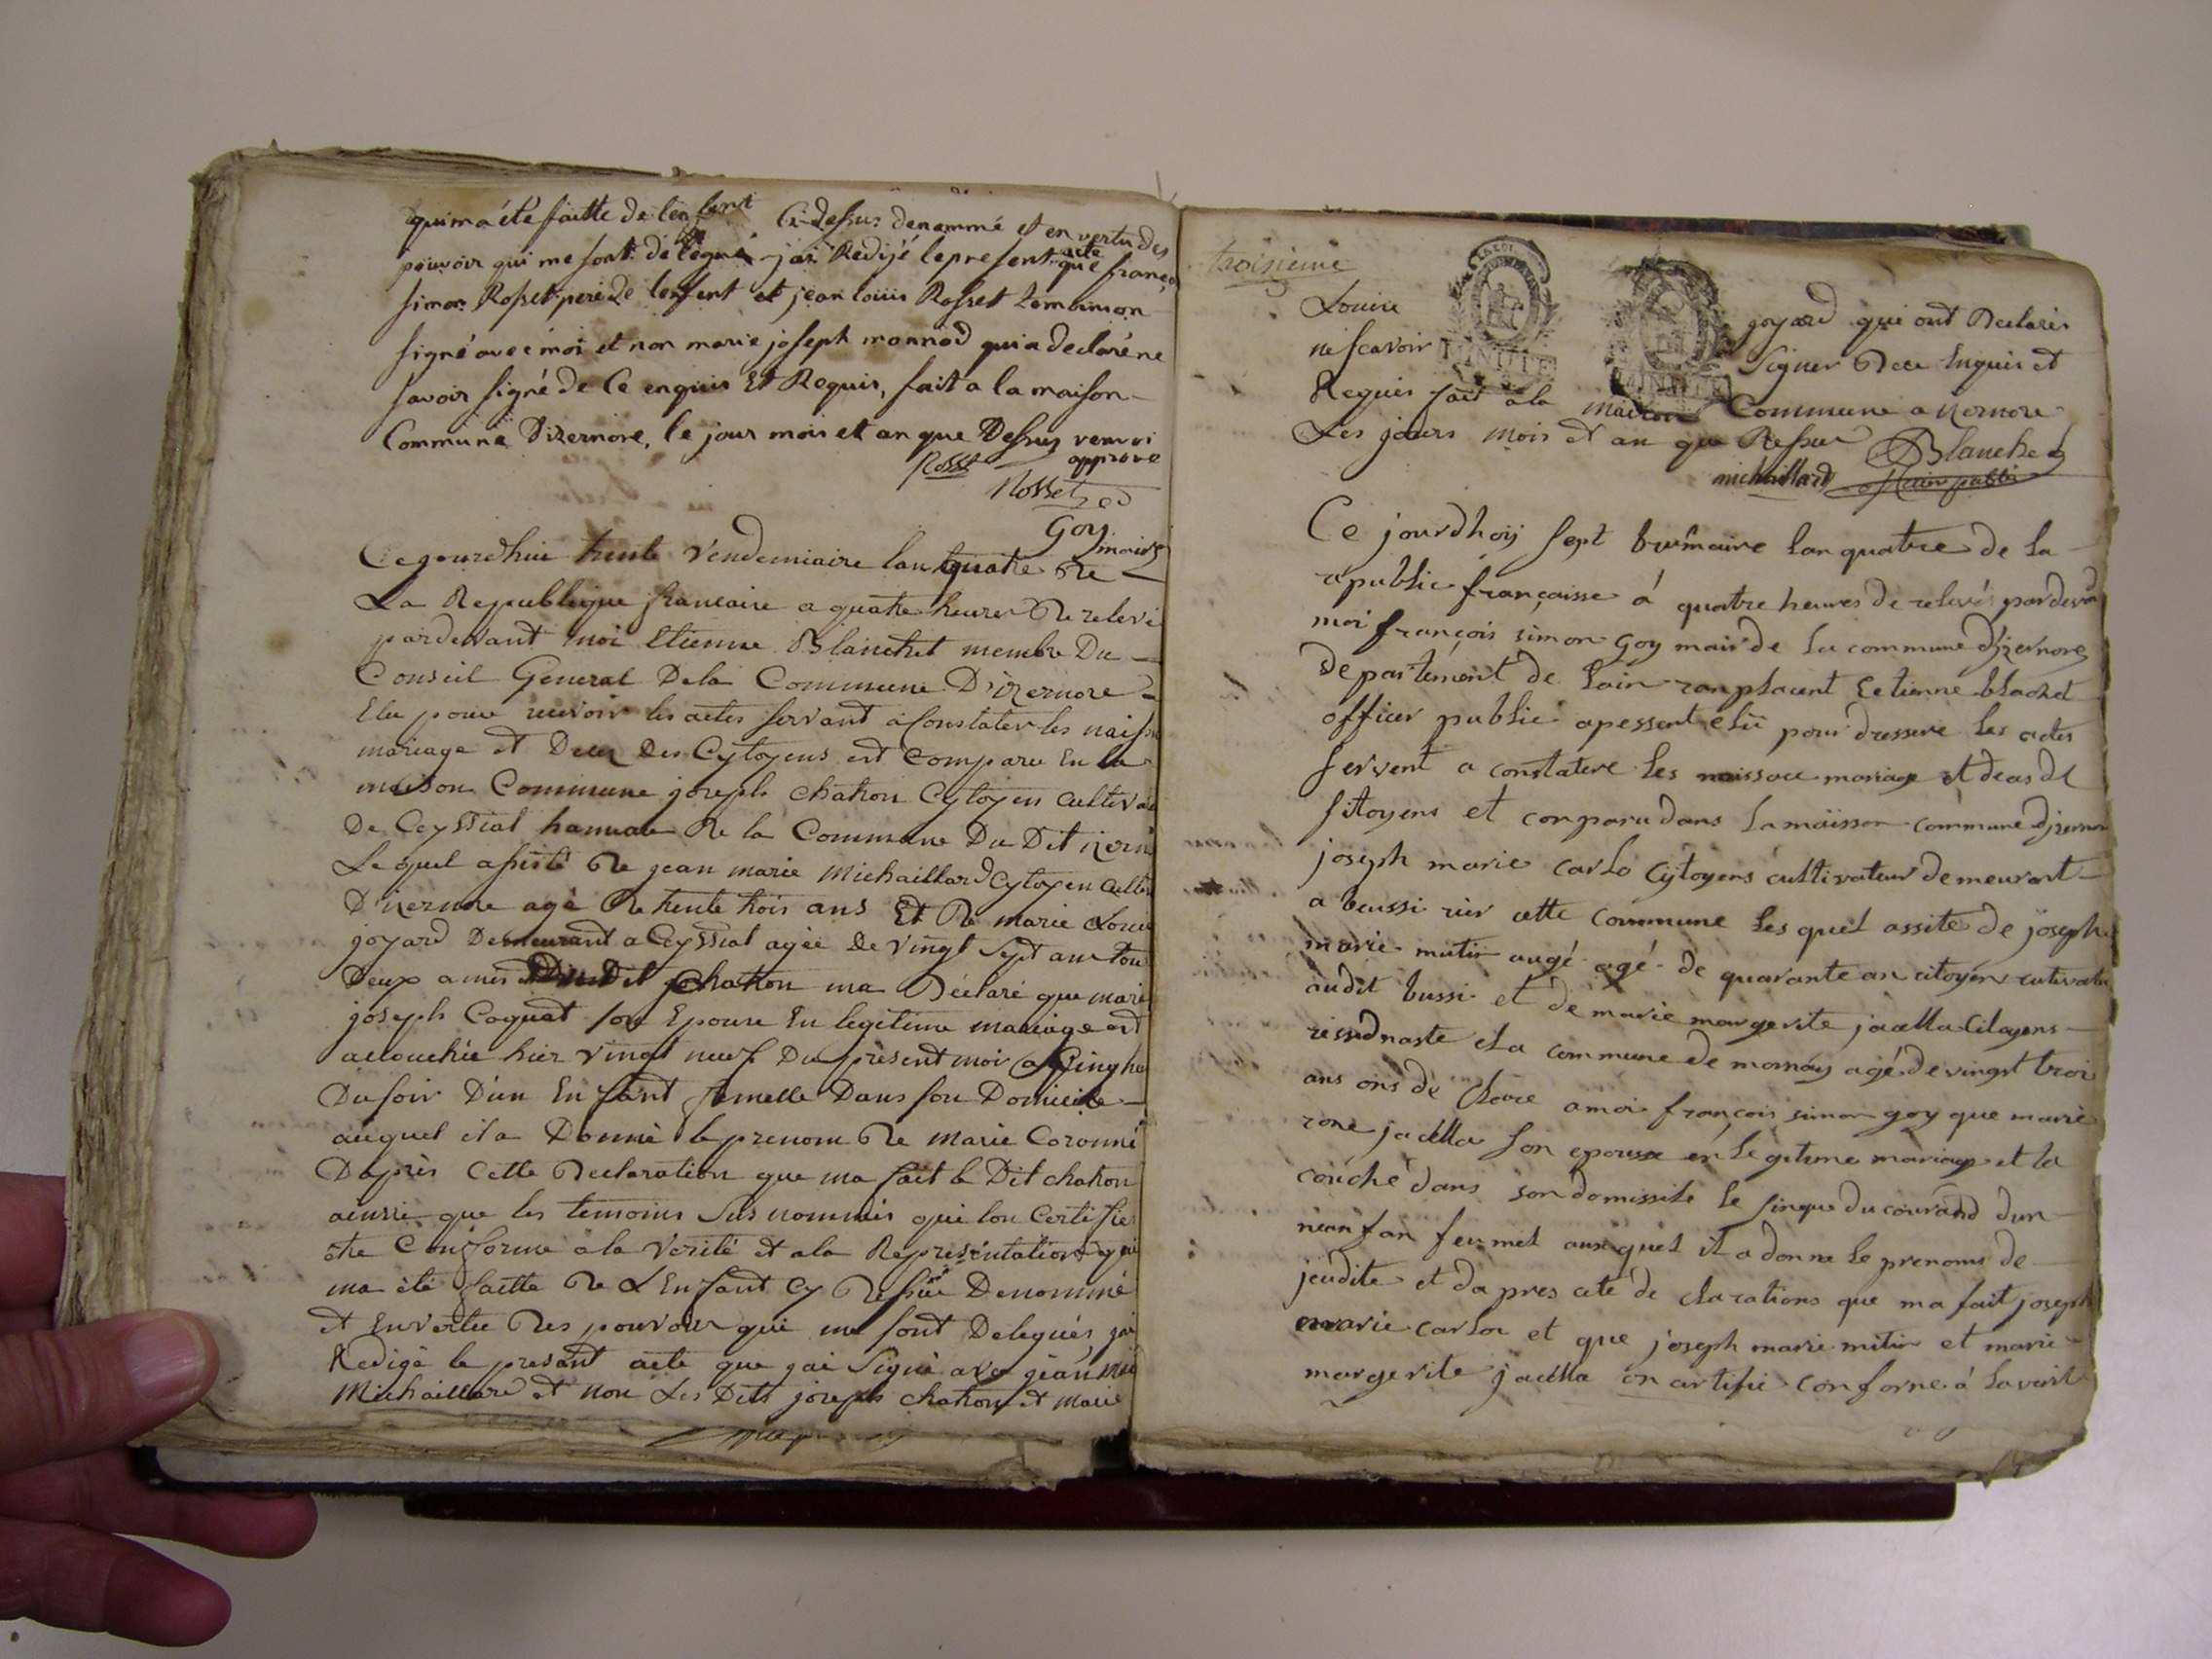 qui m'a été faitte de lenfent Ci dessus denommé et en vertu des
pouvoir qui me sont délégué jai Redijé le present acte que françois
simon Rosset pere de lenfent et jean louis Rosset Lembinion
signé avec moi et non marie joseph monnod qui a declaré ne
savoir signé de Ce enquis Et Requis, fait a la maison
Commune Dizernore, le jour mois et an que Dessus renvoi
apprové
Rosset
Rosset
Goy maire
Cejourdhui trente Vendemiaire lan quatre De
La Republique francaise a quatre heures De relevé
pardevant moi Etienne Blanchet membre Du
Conseil General Dela Commune D'izernore
Elu pour recevoir les actes servant à Constater les naiss
mariage et Deces Des Cytoyens est Comparu En la
maison Commune joseph Chaton Cytoyen Cultiva
De Ceyssiat hameau De la Commune Du Dit izern
Lequel assisté De jean marie Michaillard Cytoyen Culti
D'izernore agé De trente trois ans Et De marie Louise
joyard Demeurant a Ceyssiat agée de Vingt Sept ans tou
Deux amis Du Dit Chaton ma Déclaré que marie
joseph Coquet son Epouse En legitime mariage est
accouchée hier Vingt neuf Du présent mois a Cinq heu
Du soir D'un Enfant femelle Dans son Domicile
auquel il a Donné le prenom De Marie Coronné
Daprès Cette Declaration que ma fait le Dit chaton
ainssi que les temoins Sus nommés qui lon Certifie
être Conforme a la Verité et a la Représéntation qui
ma été faitte De L Enfant Cy Dessus Denommé
et Envertu Des pouvoirs qui me sont Delegués, jai
Redigé le présent acte que jai Signé avec jean Marie
Michaillard et non Les Dits joseph Chaton et Marie
troisieme
Louise goyard qui ont Declarés
ne scavoir Signer Dece Enquis et
MINUTE MINUTE
Requis fait a la Maison Commune a izernore
Les jours mois et an que Dessus Blanchet
michaillard officier public
Ce jourdhoij sept brumaire lan quatre de la
républic françaisse á quatre heures de relevé pardevan
moi françois simon goy mair de la commune djzernore
département de lain ranplacent Eetienne blachet
officier public apessent elü pour dressere les actes
servent a constatere les naissace mariage et deas de
sitoyens et conparu dans la maisson commune djzernor
joseph marie carlo Cytoyens cultivateur demeurant
a beussi rier cette commune lesquel assite de joseph
marie mutin augé agé de quarante an citoyen cutivate
audit bussi et de marie margerite jacella Citoyens
ressidnaste cla commune de mornay agé de vingt troi
ans ons dé Clare a moi françois simon goy que marie
rone jacella son epousse en légitime mariage et la
couché dans son domissile le sinque du courand dun
nean fan feumel auxquel il a donne le prenoms de
jeudite et da pres ceté de clarations que ma fait joseph
marie carlo et que joseph marie mitin et marie
margerite jacella on artifié conforne á laverit